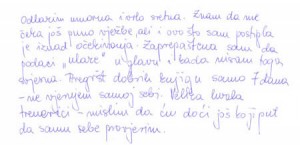 Odlazim umorna i vrlo sretna. Znam da me
čeka još puno vježbe, ali i ovo što sam postigla
je iznad očekivanja. Zaprepaštena sam da
podaci "ulaze" u glavu i kada nisam toga
svjesna. Pregršt dobrih knjiga samo 7 dana
- ne vjerujem samoj sebi. Velika hvala
trenerici - mislim da ću doći još koji put
da samu sebe provjerim.